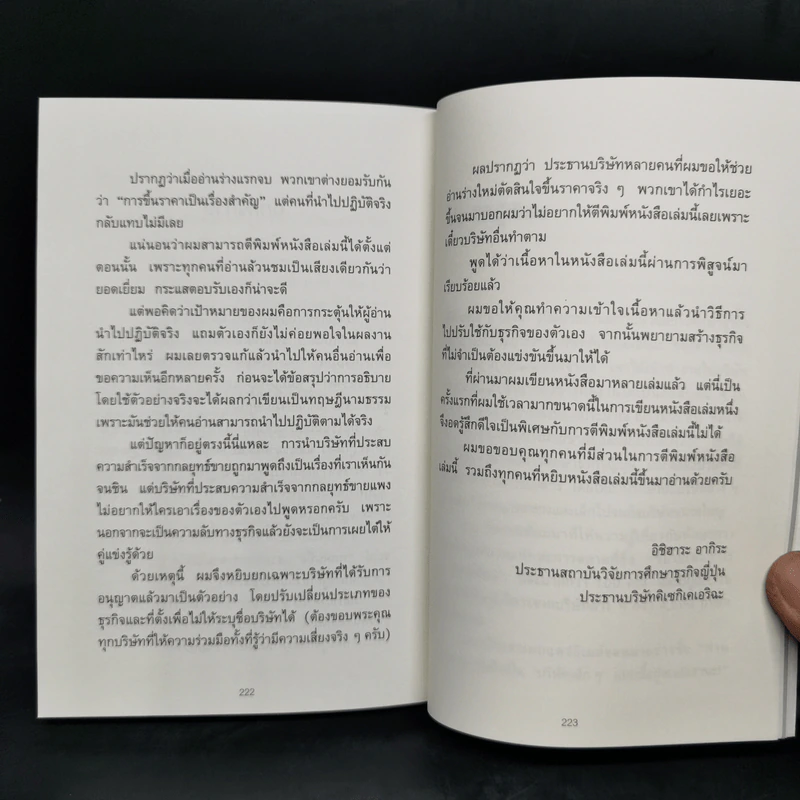 ปรากฏว่าเมื่ออ่านร่างแรกจบ พวกเขาต่างยอมรับกัน
ว่า “การขึ้นราคาเป็นเรื่องสำคัญ” แต่คนที่นำไปปฏิบัติจริง
กลับแทบไม่มีเลย
แน่นอนว่าผมสามารถตีพิมพ์หนังสือเล่มนี้ได้ตั้งแต่
ตอนนั้น เพราะทุกคนที่อ่านล้วนชมเป็นเสียงเดียวกันว่า
ยอดเยี่ยม กระแสตอบรับเองก็น่าจะดี
แต่พอคิดว่าเป้าหมายของผมคือการกระตุ้นให้ผู้อ่าน
นำไปปฏิบัติจริง แถมตัวเองก็ยังไม่ค่อยพอใจในผลงาน
สักเท่าไหร่ ผมเลยตรวจแก้แล้วนำไปให้คนอื่นอ่านเพื่อ
ขอความเห็นอีกหลายครั้ง ก่อนจะได้ข้อสรุปว่าการอธิบาย
โดยใช้ตัวอย่างจริงจะได้ผลกว่าเขียนเป็นทฤษฎีนามธรรม
เพราะมันช่วยให้คนอ่านสามารถนำไปปฏิบัติตามได้จริง
แต่ปัญหาก็อยู่ตรงนี้นี่แหละ การนำบริษัทที่ประสบ
ความสำเร็จจากกลยุทธ์ขายถูกมาพูดถึงเป็นเรื่องที่เราเห็นกัน
จนชิน แต่บริษัทที่ประสบความสำเร็จจากกลยุทธ์ขายแพง
ไม่อยากให้ใครเอาเรื่องของตัวเองไปพูดหรอกครับ เพราะ
นอกจากจะเป็นความลับทางธุรกิจแล้วยังจะเป็นการเผยไต๋ให้
คู่แข่งรู้ด้วย
ด้วยเหตุนี้ ผมจึงหยิบยกเฉพาะบริษัทที่ได้รับการ
อนุญาตแล้วมาเป็นตัวอย่าง โดยปรับเปลี่ยนประเภทของ
ธุรกิจและที่ตั้งเพื่อไม่ให้ระบุชื่อบริษัทได้ (ต้องขอบพระคุณ
ทุกบริษัทที่ให้ความร่วมมือทั้งที่รู้ว่ามีความเสี่ยงจริง ๆ ครับ)
222
ผลปรากฏว่า ประธานบริษัทหลายคนที่ผมขอให้ช่วย
อ่านร่างใหม่ตัดสินใจขึ้นราคาจริง ๆ พวกเขาได้กำไรเยอะ
ขึ้นจนมาบอกผมว่าไม่อยากให้ตีพิมพ์หนังสือเล่มนี้เลยเพราะ
เดี๋ยวบริษัทอื่นทำตาม
พูดได้ว่าเนื้อหาในหนังสือเล่มนี้ผ่านการพิสูจน์มา
เรียบร้อยแล้ว
ผมขอให้คุณทำความเข้าใจเนื้อหาแล้วนำวิธีการ
ไปปรับใช้กับธุรกิจของตัวเอง จากนั้นพยายามสร้างธุรกิจ
ที่ไม่จำเป็นต้องแข่งขันขึ้นมาให้ได้
ที่ผ่านมาผมเขียนหนังสือมาหลายเล่มแล้ว แต่นี่เป็น
ครั้งแรกที่ผมใช้เวลามากขนาดนี้ในการเขียนหนังสือเล่มหนึ่ง
จึงอดรู้สึกดีใจเป็นพิเศษกับการตีพิมพ์หนังสือเล่มนี้ไม่ได้
ผมขอขอบคุณทุกคนที่มีส่วนในการตีพิมพ์หนังสือ
เล่มนี้ รวมถึงทุกคนที่หยิบหนังสือเล่มนี้ขึ้นมาอ่านด้วยครับ
อิชิฮาระ อากิระ
ประธานสถาบันวิจัยการศึกษาธุรกิจญี่ปุ่น
ประธานบริษัทคิเซกิเคเอริฉะ
223